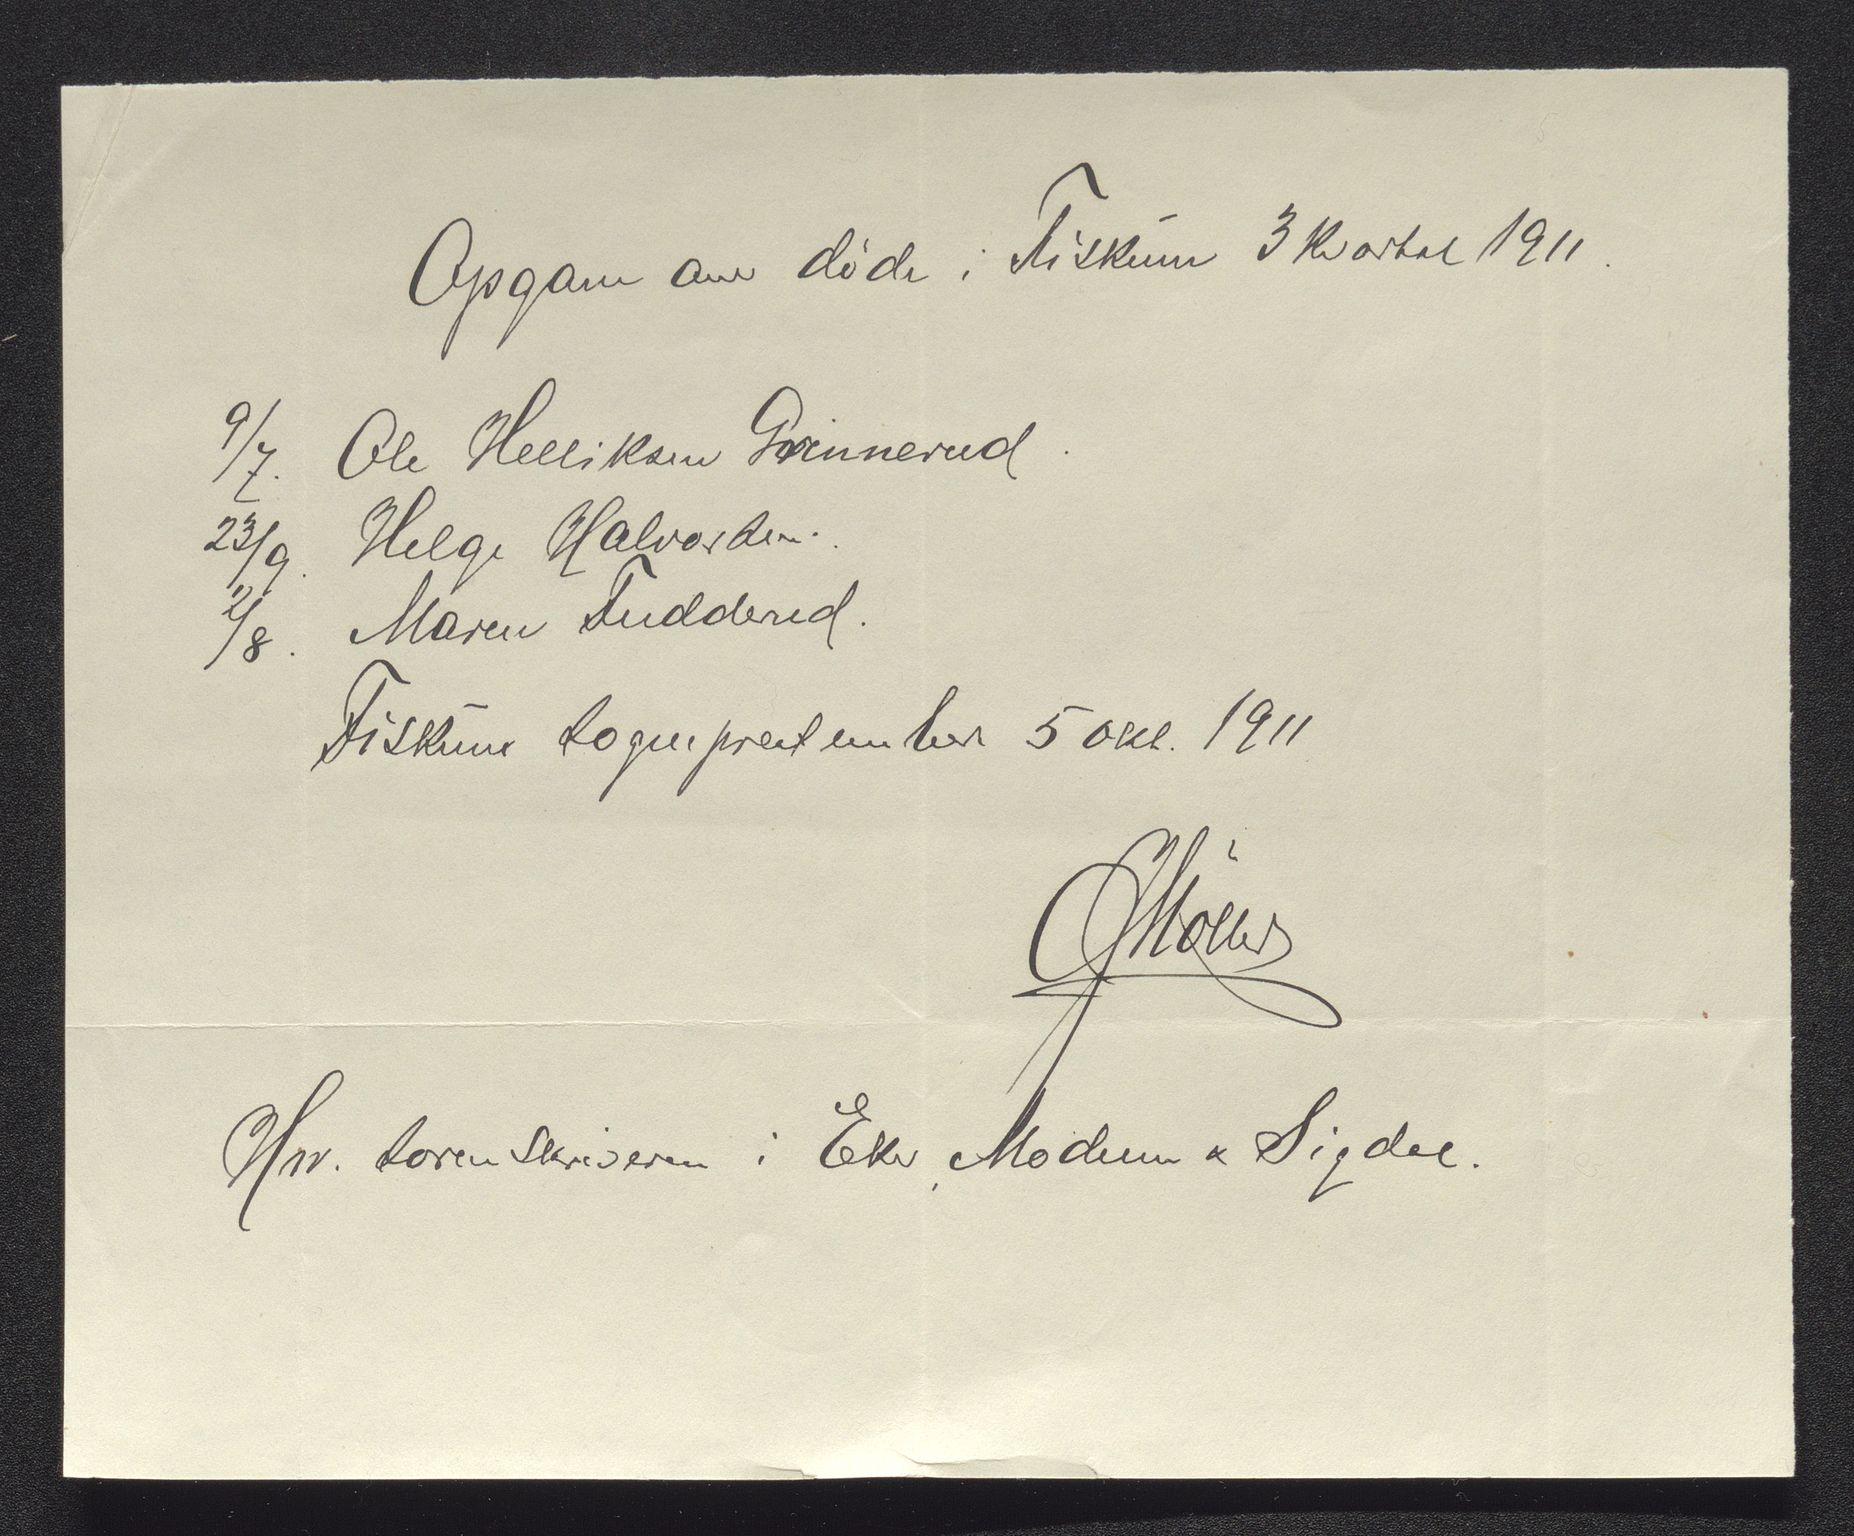 Opgave over døde i Fiskum 3 Kvartal 1911.
9/7. Ole Helliksen Grinnerud.
23/9. Helge Halvorsen.
2/8. Maren Fudderud.
Fiskum sogneprestembede 5 okt. 1911
Møller
Hrr. sorenskriveren i Eker, Modum & Sigdal.